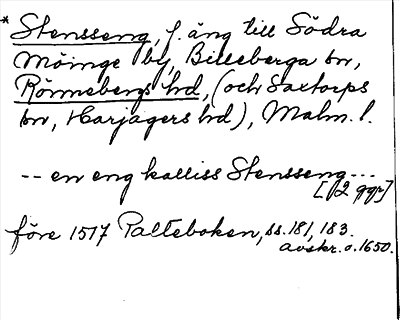 * Stensseng, f. äng till Södra
Möinge by, Billeberga sn,
Rönnebergs hd, (och Saxtorps
sn, Harjagers hd), Malm. l.
-- en eng kalliss Stensseng ---
[/2 ggr]
före 1517 Palteboken, ss. 181, 183.
avskr. o. 1650.